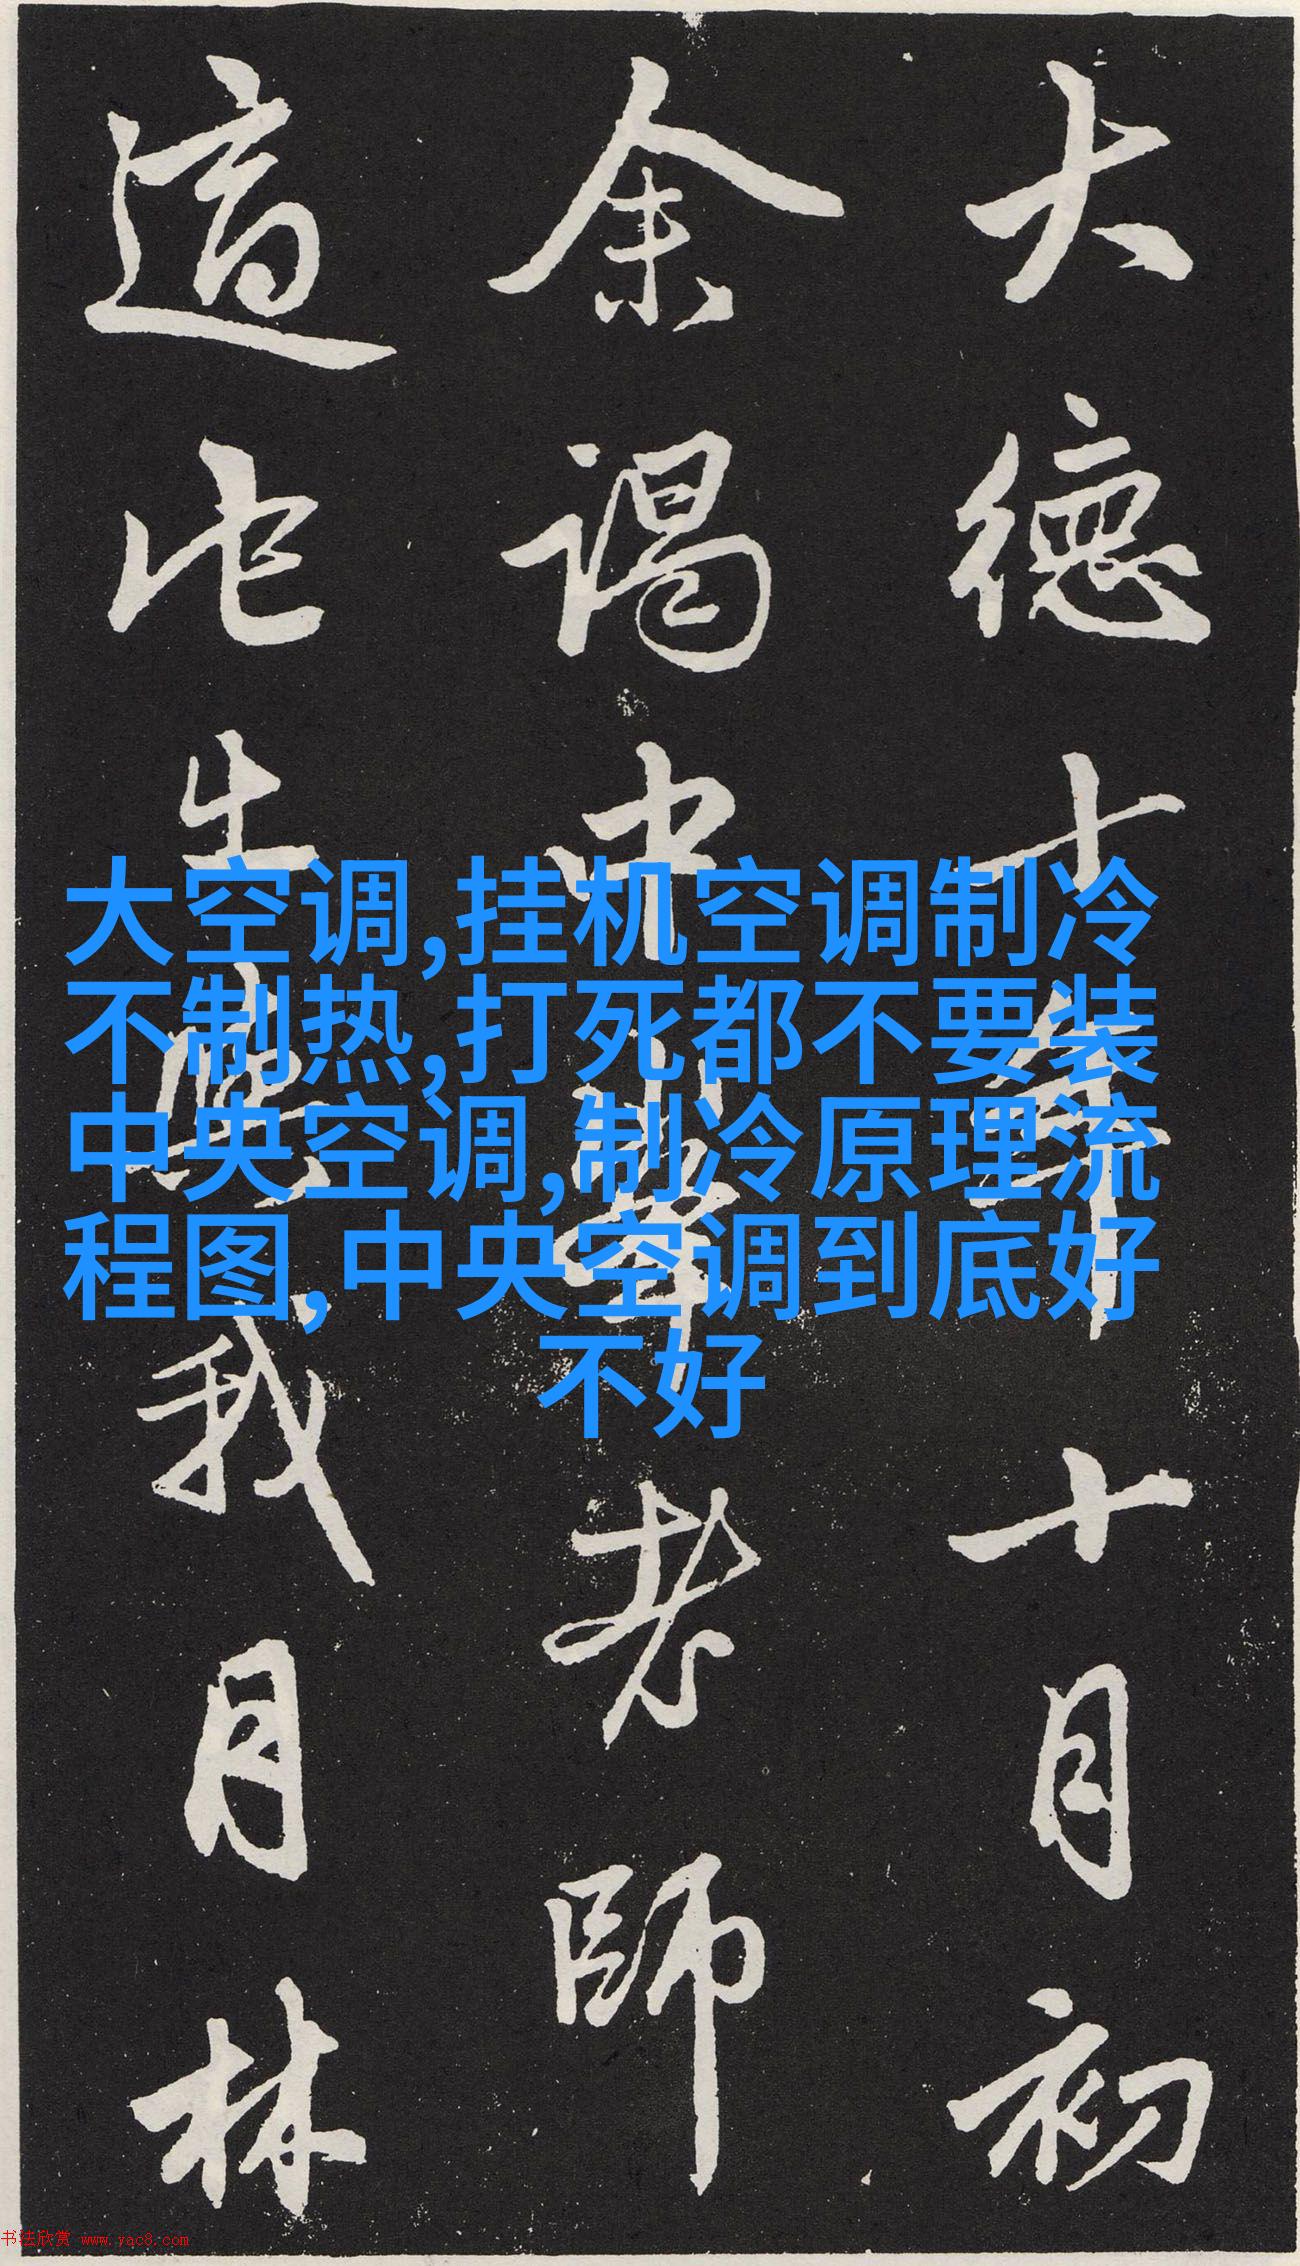 大德十一年十月初
余谒中峯老師
適此出與我月林
大空调,挂机空调制冷
不制热,打死都不要装
中央空调,制冷原理流
程图,中央空调到底好
不好
书法欣赏 www.yac8.com